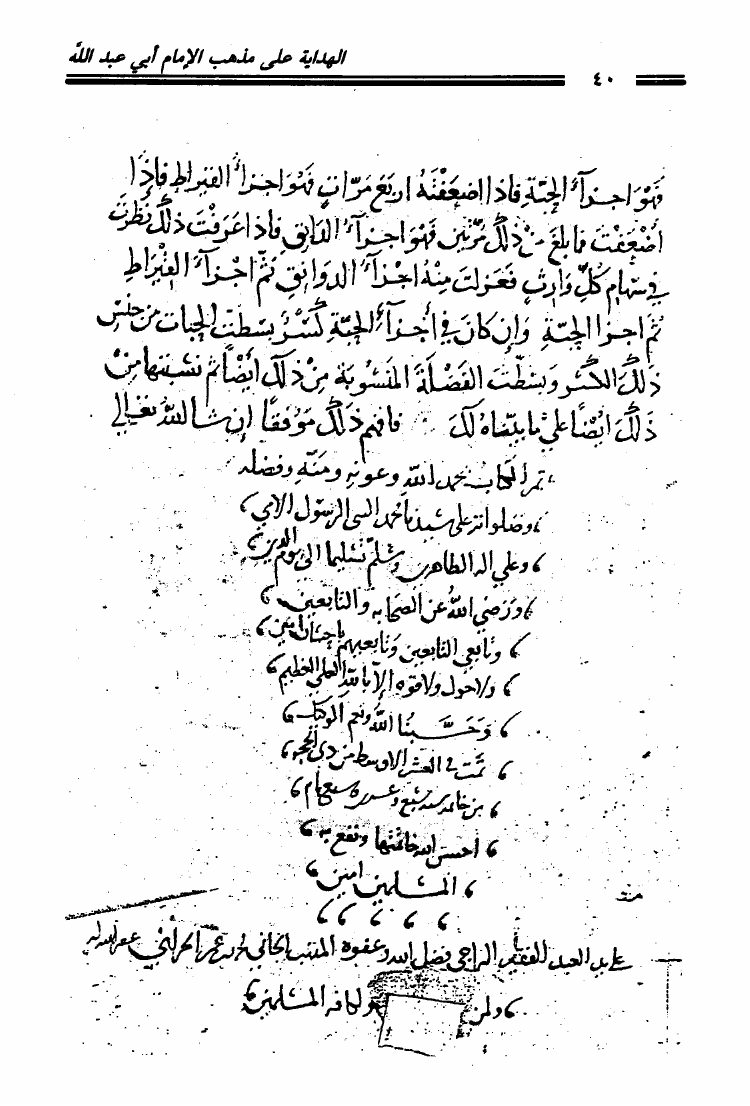 الهداية على مذهب الإمام أبي عبد الله
٤٠
فهو اجزآء الحبة فاذا اضعفته اربع مرات فهو اجزآء القيراط فإذا
أضعفت ما بلغ من ذلك مرتين فهو اجزآء الدانق فاذا عرفت ذلك نظرت
في سهام كل وارث فعزلت منه اجزآء الدوانق ثم اجزآء القيراط
ثم اجزا الحبة وإن كان في أجزآء الحبة كسر بسطت الحبات من جنس
ذلك الكسر وبسطت الفضلة المنسوبة من ذلك أيضا ثم نسبتها من
ذلك ايضا على ما بيناه لك فافهم ذلك موفقا إن شا الله تعالى
تم الكتاب بحمد الله وعونه ومنه وفضله
وصلواته على سيدنا محمد النبي الرسول الامي
وعلى اله الطاهرين وسلم تسليما الى يوم الدين
ورضي الله عن الصحابه والتابعين
وتابعي التابعين وتابعيهم باحسان امين
ولا حول ولا قوه الا بالله العلي العظيم
وحسبنا الله ونعم الوكيل
تمت في العشر الاوسط من ذي الحجه
سبع وعشره سبع
احسن الله خاتمتها ونفع به
المسلمين امين
على يد العبد الفقير الراجي فضل الله وعفوه المذنب الجاني عمر الحراني غفر الله له
ولمن ولكافه المسلمين